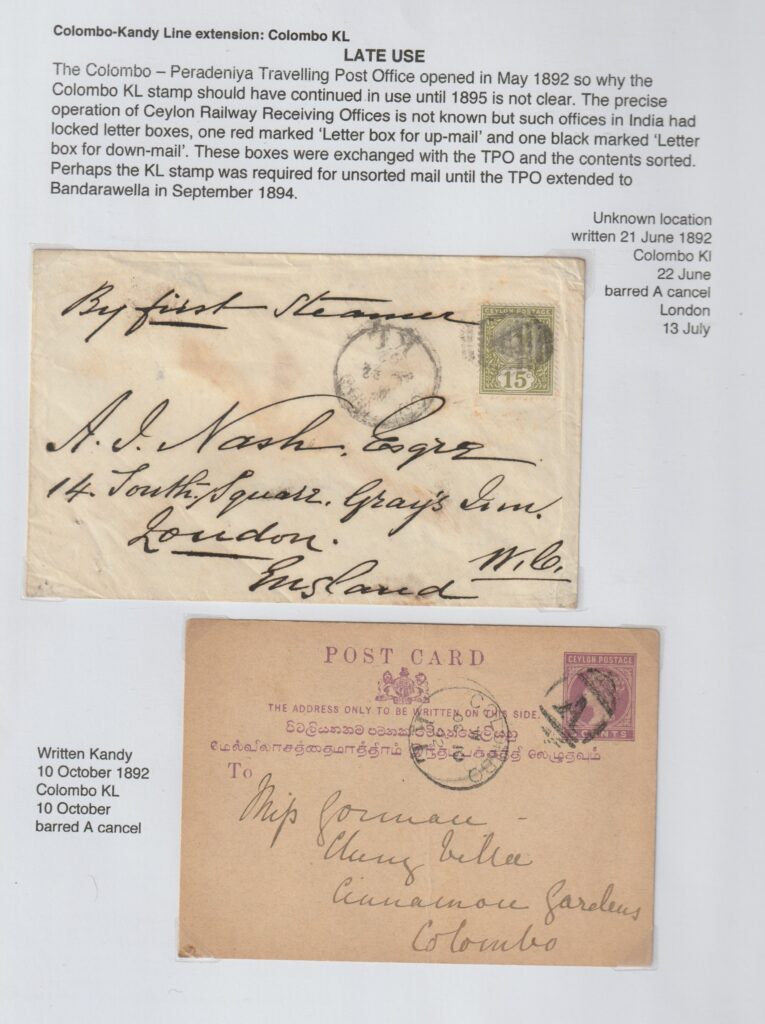 Colombo-Kandy Line extension: Colombo KL
LATE USE
The Colombo – Peradeniya Travelling Post Office opened in May 1892 so why the
Colombo KL stamp should have continued in use until 1895 is not clear. The precise
operation of Ceylon Railway Receiving Offices is not known but such offices in India had
locked letter boxes, one red marked ‘Letter box for up-mail’ and one black marked ‘Letter
box for down-mail’. These boxes were exchanged with the TPO and the contents sorted.
Perhaps the KL stamp was required for unsorted mail until the TPO extended to
Bandarawella in September 1894.
Unknown location
written 21 June 1892
Colombo Kl
22 June
barred A cancel
London
13 July
By first Steamer
CEYLON POSTAGE
15c
KL
A. J. Nash. Esqre
14. South Square. Gray's Inn.
London.
W.C.
England
POST CARD
CEYLON POSTAGE
THE ADDRESS ONLY TO BE WRITTEN ON THIS SIDE.
மேல்விலாசத்தைமாத்திரம்
CENTS
COLOMBO
KL
A
To
Miss Gorman -
Villa
Cinnamon Gardens
Colombo
Written Kandy
10 October 1892
Colombo KL
10 October
barred A cancel